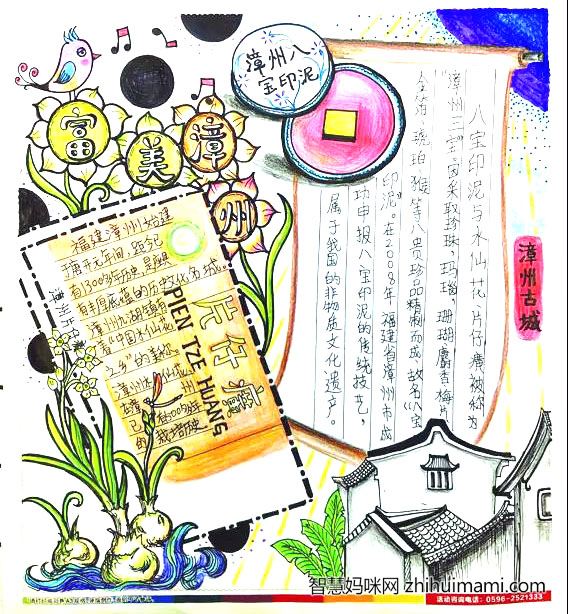 富美漳州
漳州八
宝印泥
八宝印泥与水仙花、片仔癀被称为
“漳州三宝”,因采取珍珠、玛瑙、珊瑚、麝香、梅片、
金箔、琥珀、猴等八贵珍品精制而成,故名《八宝
印泥》。在2008年,福建省漳州市成
功申报八宝印泥的传统技艺,
属于我国的非物质文化遗产。
漳州古城
福建漳州始建
于唐开元年间,距今已
有1300多年历史,是座具
有丰厚底蕴的历史文化名城。
漳州
有着“中国水仙花
之乡”的美称,
漳州水仙
栽培历史
片仔癀
PIEN TZE HUANG
漳州片仔癀
智慧妈咪网 zhihuimami.com
活动咨询电话:0596-2521333